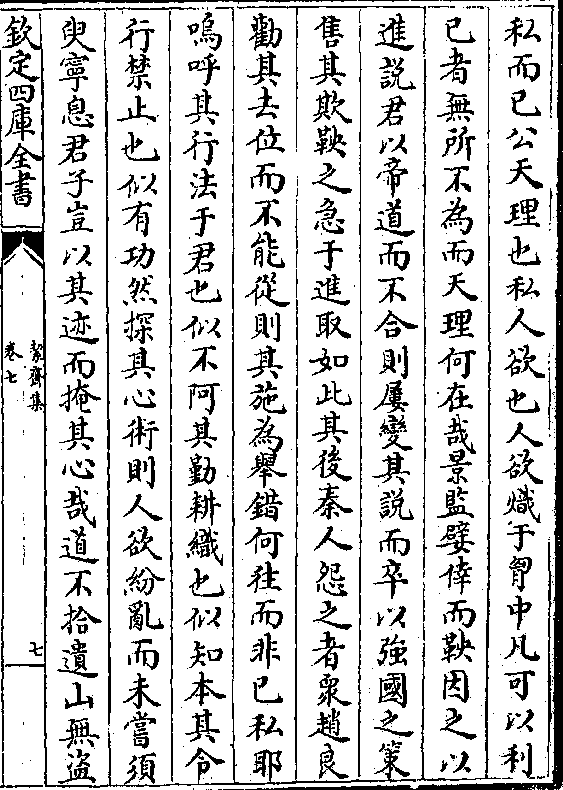 私而已公天理也私人欲也人欲熾于胷中凡可以利
已者無所不為而天理何在哉景監嬖倖而鞅因之以
進説君以帝道而不合則屢變其説而卒以強國之策
售其欺鞅之急于進取如此其後秦人怨之者衆趙良
勸其去位而不能從則其施為舉錯何往而非已私耶
嗚呼其行法于君也似不阿其勤耕織也似知本其令
行禁止也似有功然探其心術則人欲紛亂而未嘗須
臾寧息君子豈以其迹而掩其心哉道不拾遺山無盗
欽定四庫全書
絜齋集
卷七
七